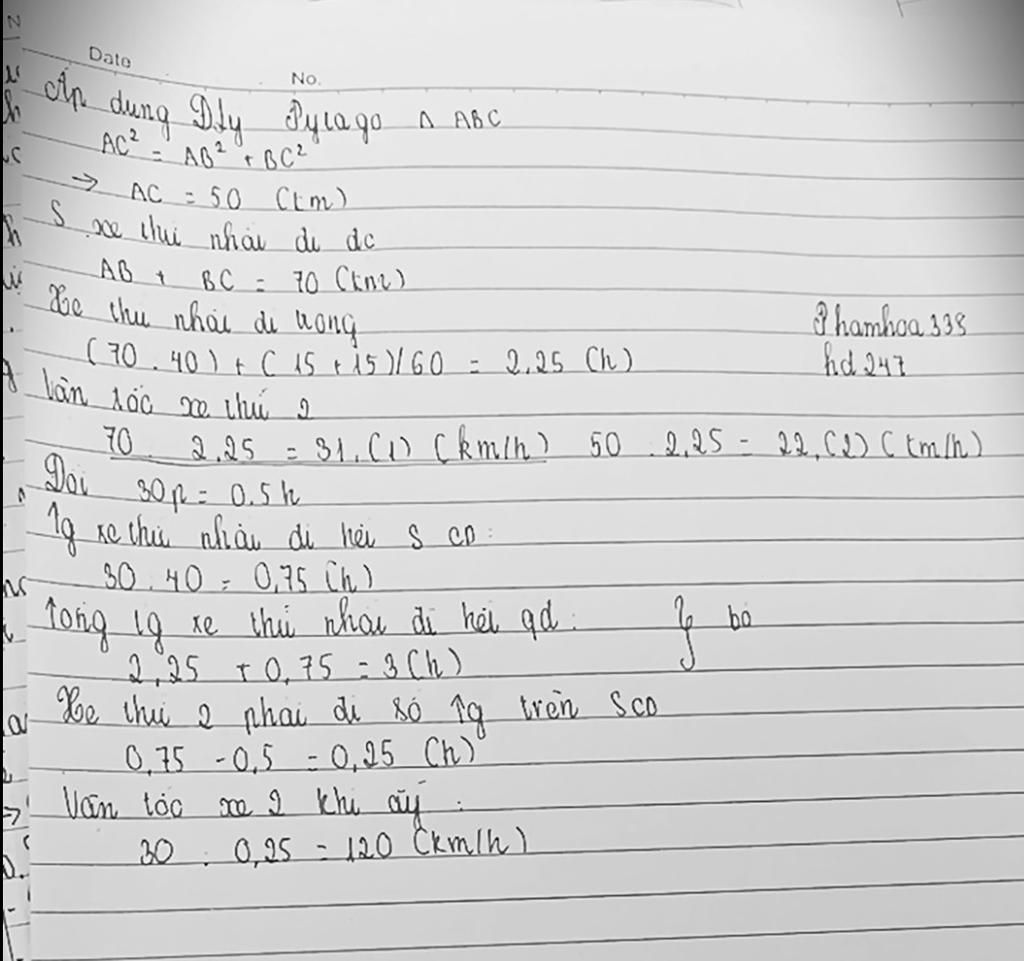 Date
No.
Áp dung Dly Pytago Δ ABC
AC² = AB² + BC²
→ AC = 50 (km)
S xe thứ nhất đi dc
AB + BC = 70 (km)
Xe thứ nhất đi trong
(70 . 40) + ( 15 + 15)/60 = 2,25 (h)
Phamhoa338
hd247
Vân tốc xe thứ 2
70 . 2,25 = 31,(1) (km/h) 50 . 2,25 = 22,(2) (km/h)
Đổi 30p = 0.5h
Tg xe thứ nhất đi hết S CD :
30 . 40 = 0,75 (h)
Tổng tg xe thứ nhất đi hết qd :
bỏ
2,25 + 0,75 = 3(h)
Xe thứ 2 phải đi số tg trên SCD
0,75 - 0,5 = 0,25 (h)
Vân tốc xe 2 khi ấy :
30 : 0,25 = 120 (km/h)